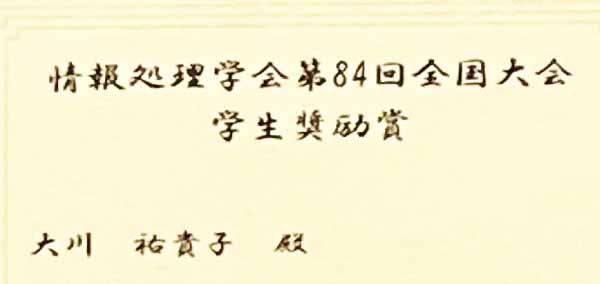 情報処理学会第84回全国大会
学生奨励賞
大川 祐貴子 殿